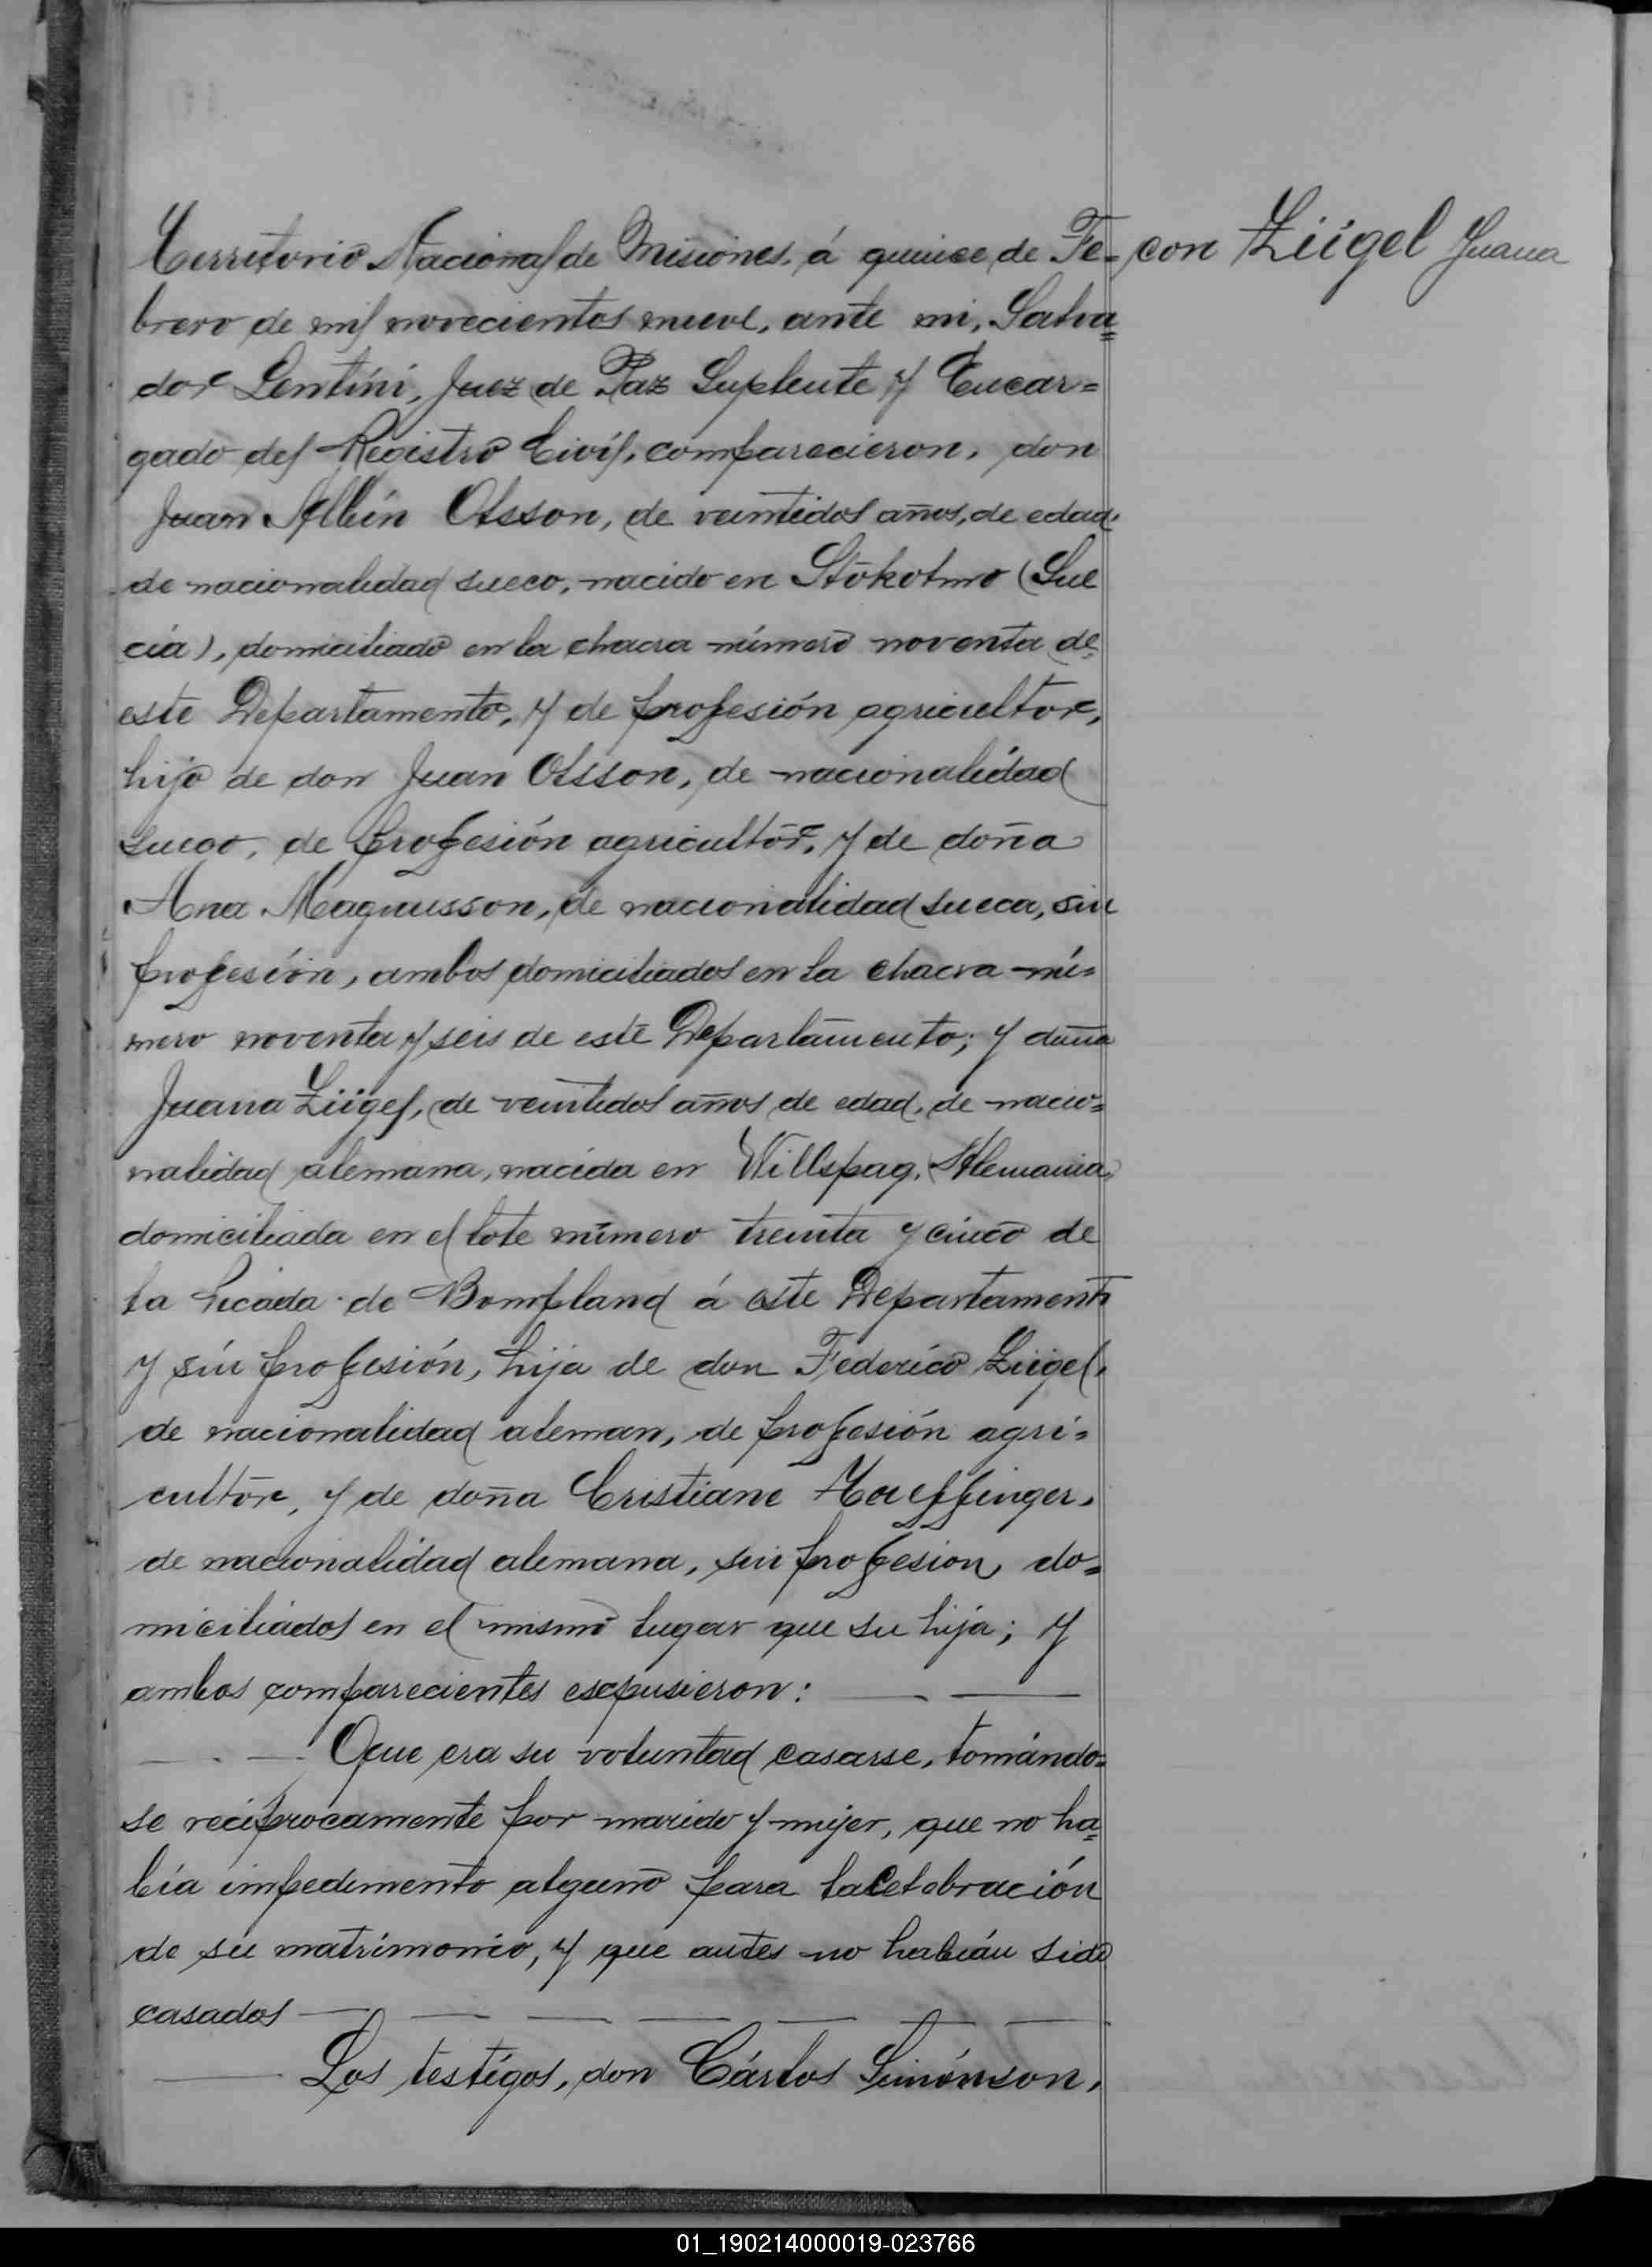 Territorio Nacional de Misiones, á quince de Fe=
con Züigel Juana
brero de mil novecientos nueve, ante mi, Salva=
dor Lentini, Juez de Paz Suplente y Encar=
gado del Registro Civil, comparecieron, don
Juan Albin Olsson, de veintidos años, de edad,
de nacionalidad sueco, nacido en Stokolmo (Sue
cia), domiciliado en la chacra número noventa de
este Departamento, y de profesión agricultor,
hijo de don Juan Olsson, de nacionalidad
sueco, de profesión agricultor, y de doña
Ana Magnusson, de nacionalidad sueca, sin
profesión, ambos domiciliados en la chacra nú=
mero noventa y seis de este Departamento; y doña
Juana Züigel, de veintidos años de edad, de nacio=
nalidad alemana, nacida en Willspag, Alemania,
domiciliada en el lote número treinta y cinco de
la Picada de Bompland á este Departamento
y sin profesión, hija de don Federico Züigel,
de nacionalidad aleman, de profesión agri=
cultor, y de doña Cristiane Haeffinger,
de nacionalidad alemana, sin profesion, do=
miciliados en el mismo lugar que su hija; y
ambos comparecientes expusieron:
Que era su voluntad casarse, tomándo=
se recíprocamente por marido y mujer, que no ha=
bía impedimento alguno para la Celebración
de su matrimonio, y que antes no habián sido
casados
Los testigos, don Cárlos Simónson,
01_190214000019-023766